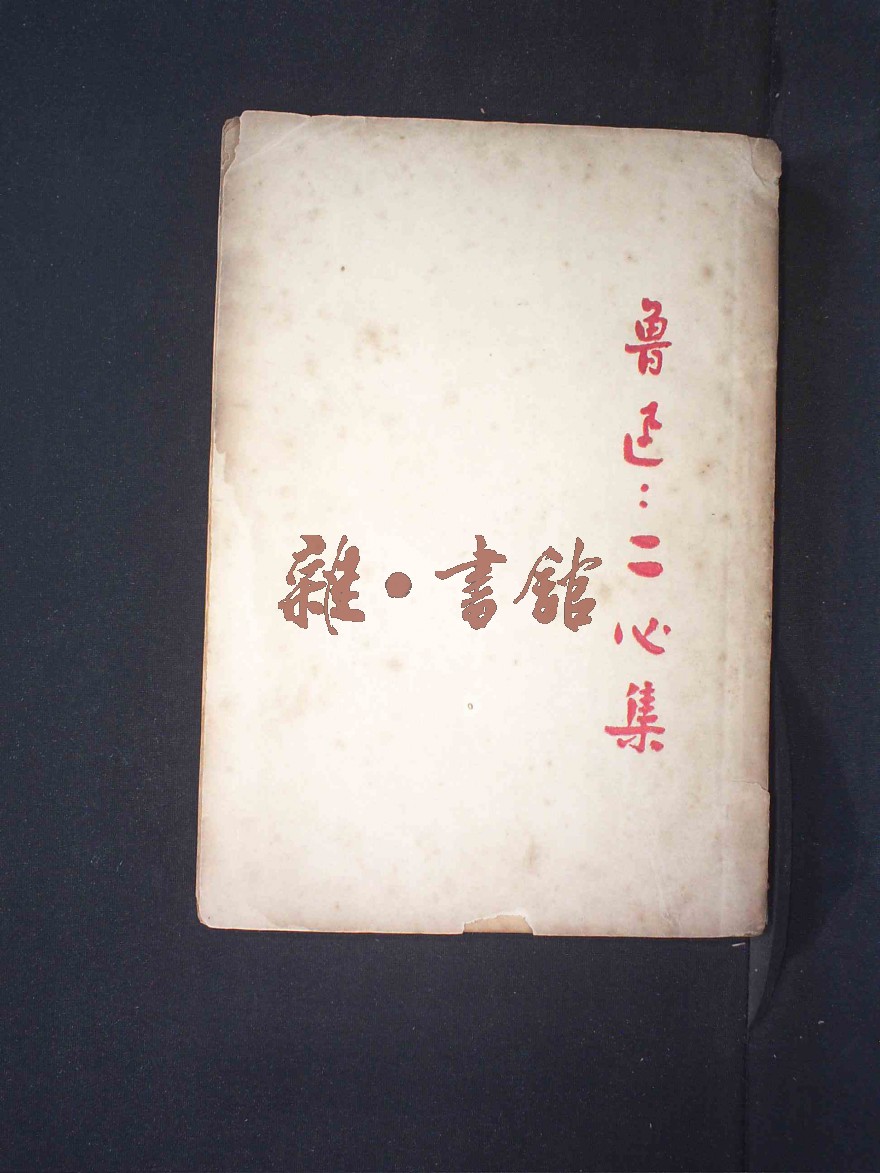 魯迅：二心集
雜•書館